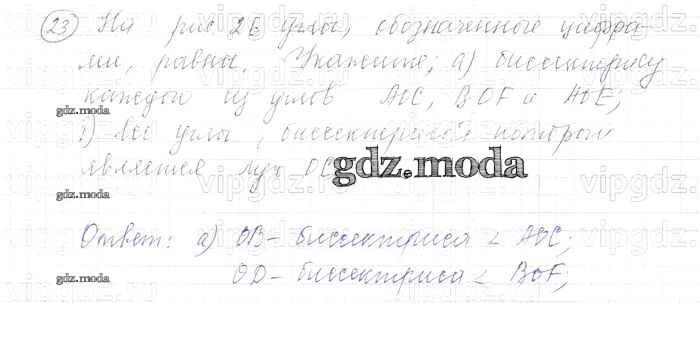 23) На рис 26 углы, обозначенные цифра
ми, равны. Укажите; а) биссектрису
каждой из углов AOC, BOF и AOE;
gdz.moda
) все углы, биссектрисой которой
является луч OC
gdz.moda
gdz.moda
Ответ: а) OB - биссектриса < AOC;
gdz.moda
OD - биссектриса < BOF;
gdz.moda